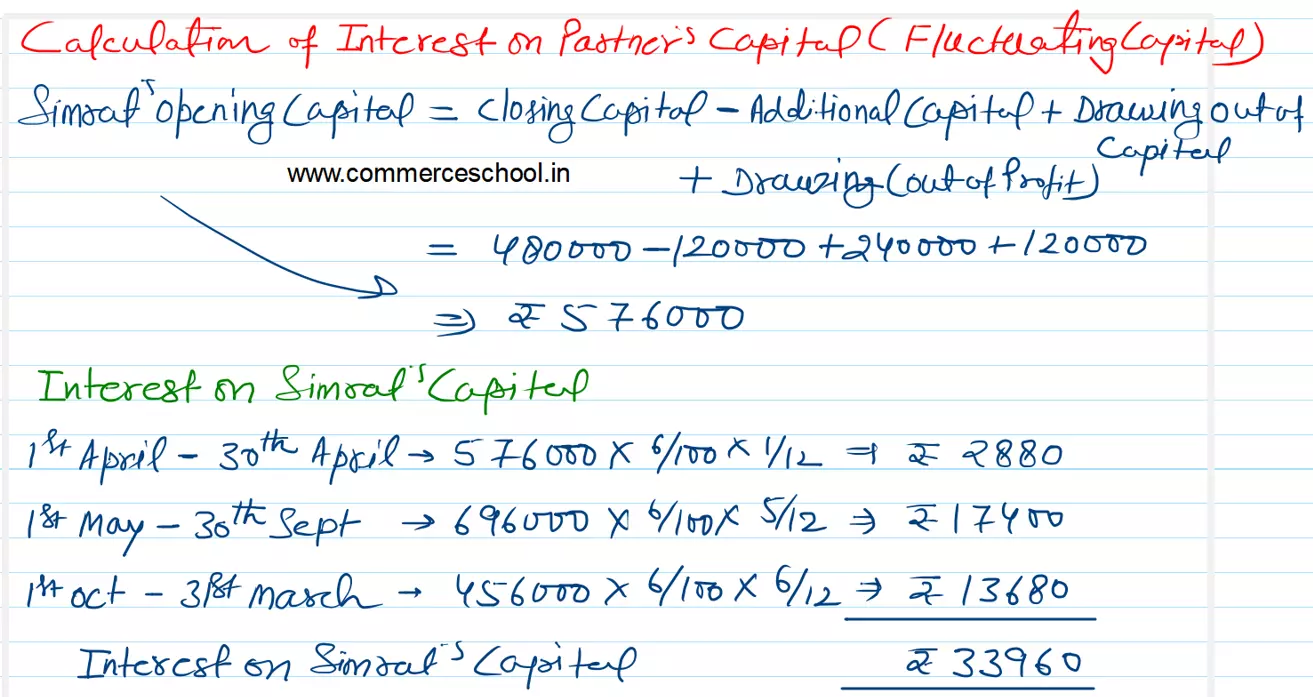 Calculation of Interest on Partner's Capital (Fluctuating Capital)
Simrat's opening Capital = Closing Capital - Additional Capital + Drawing out of Capital
www.commerceschool.in
+ Drawing (out of Profit)
= 480000 - 120000 + 240000 + 120000
⇒ ₹ 576000
Interest on Simrat's Capital
1st April - 30th April → 576000 × 6/100 × 1/12 ⇒ ₹ 2880
1st May - 30th Sept → 696000 × 6/100 × 5/12 ⇒ ₹ 17400
1st Oct - 31st March → 456000 × 6/100 × 6/12 ⇒ ₹ 13680
Interest on Simrat's Capital ₹ 33960